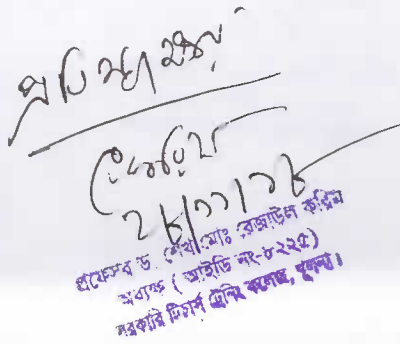 ২৮/১১/১৮
প্রফেসর ড. শেখ মোঃ রেজাউল করিম
অধ্যক্ষ ( আইডি নং-৮২২৫)
সরকারি টিচার্স ট্রেনিং কলেজ, খুলনা।